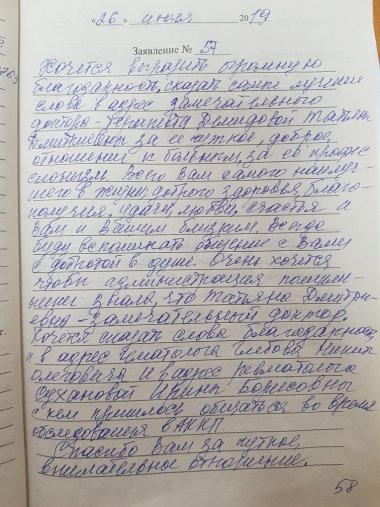 «26» июля 2019
Заявление № 57
Хочется выразить огромную
благодарность, сказать самые лучшие
слова в адрес замечательного
доктора-терапевта Демидовой Татьяны
Дмитриевны за её чуткое, доброе
отношение к больным, за её профес
сионализм. Всего Вам самого наилуч-
шего в жизни: доброго здоровья, благо-
получия, удачи, любви, счастья и
Вам и Вашим близким. Всегда
буду вспоминать общение с Вами
с добротой в душе. Очень хочется
чтобы администрация поликли-
ники знала, что Татьяна Дмитри-
евна - замечательный доктор.
Хочется сказать слова благодарности
и в адрес гематолога Глебова
Олеговича и адрес ревматолога
Сухановой Ирины Борисовны
с кем пришлось общаться во время
обследования в
Спасибо Вам за чуткое,
внимательное отношение.
58